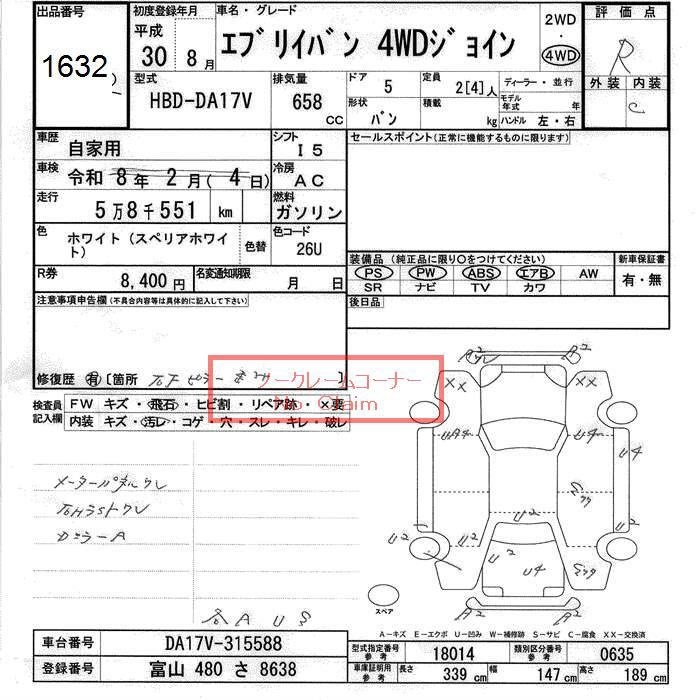 出品番号
1632
初度登録年月
平成
30 8月
車名・グレード
エブリイバン 4WDジョイン
2WD
・
4WD
評価点
R
外装 内装
C
型式
HBD-DA17V
排気量
658
CC
ドア
5
形状
バン
定員
2[4]人
積載
kg
ディーラー・並行
モデル
年式 年
ハンドル 左・右
車歴
自家用
シフト
I5
セールスポイント(正常に機能するものに限ります)
車検
令和 8年 2月(4日)
冷房
AC
走行
5万8千551 km
燃料
ガソリン
色
ホワイト(スペリアホワイト)
色替
色コード
26U
装備品(純正品に限り○をつけてください)
新車保証書
PS PW ABS エアB AW
SR ナビ TV カワ
有・無
R券
8,400円
名変通知期限
月 日
後日品
注意事項申告欄(不具合内容等は具体的に記入して下さい)
修復歴 有 [箇所
]
ノークレームコーナー
No Claim
検査員
記入欄
FW キズ・飛石・ヒビ割・リペア跡・×要
内装 キズ・汚レ・コゲ・穴・スレ・キレ・破レ
メーターパネルクレ
カラーA
A2
A2
XX
XX
UA4
U4
U4
U2
U2
U2
U2
U4
A2
A2
スペア
A-キズ E-エクボ U-凹み W-補修跡 S-サビ C-腐食 XX-交換済
車台番号
DA17V-315588
登録番号
富山 480 さ 8638
型式指定番号
参考
18014
類別区分番号
参考
0635
車庫証明用
参考
長さ
339 cm
幅
147 cm
高さ
189 cm